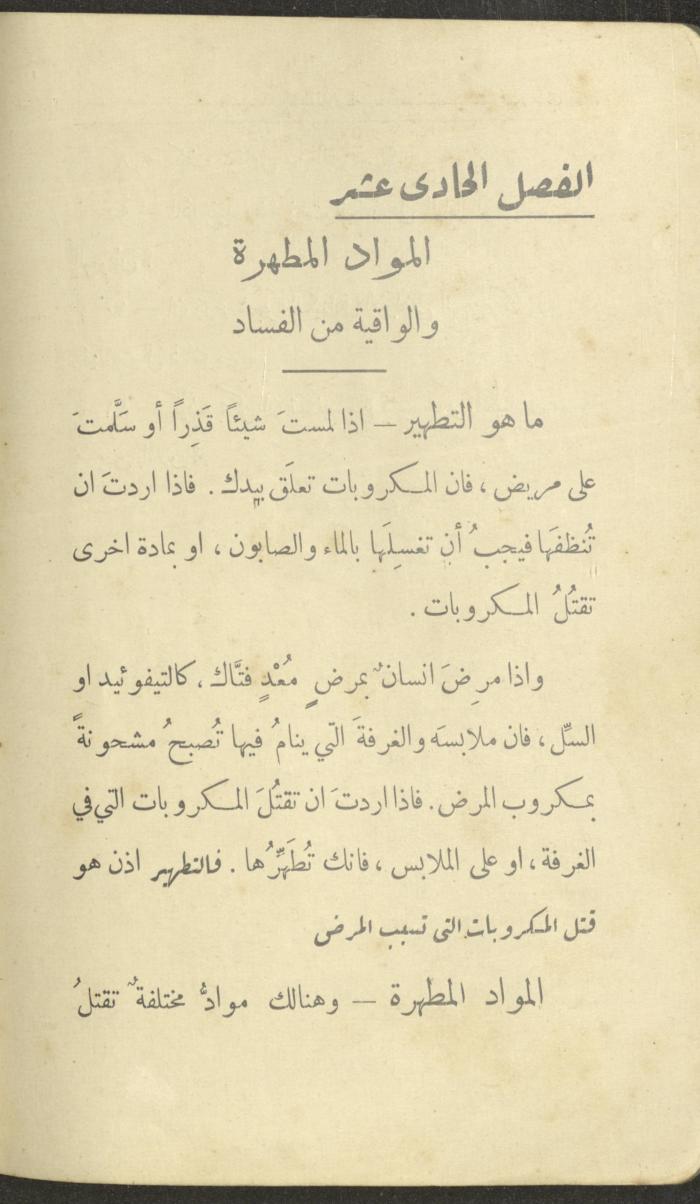 الفصل الحادى عشر
المواد المطهرة
والواقية من الفساد
ما هو التطهير — اذا لمستَ شيئاً قَذِراً أو سَلَّمتَ
على مريض ، فان المكروبات تعلَق بيدك . فاذا اردتَ ان
تُنظفَها فيجبُ أن تغسِلَها بالماء والصابون ، او بمادة اخرى
تقتُلُ المكروبات .
واذا مرِضَ انسانٌ بمرضٍ مُعْدٍ فتَّاك ، كالتيفوئيد او
السِّل ، فان ملابسَه والغرفةَ التي ينامُ فيها تُصبحُ مشحونةً
بمكروب المرض . فاذا اردتَ ان تقتُلَ المكروبات التي في
الغرفة ، او على الملابس ، فانك تُطَهِّرُها . فالتطهير اذن هو
قتل المكروبات التى تسبب المرض
المواد المطهرة — وهنالك موادُّ مختلفةٌ تقتلُ